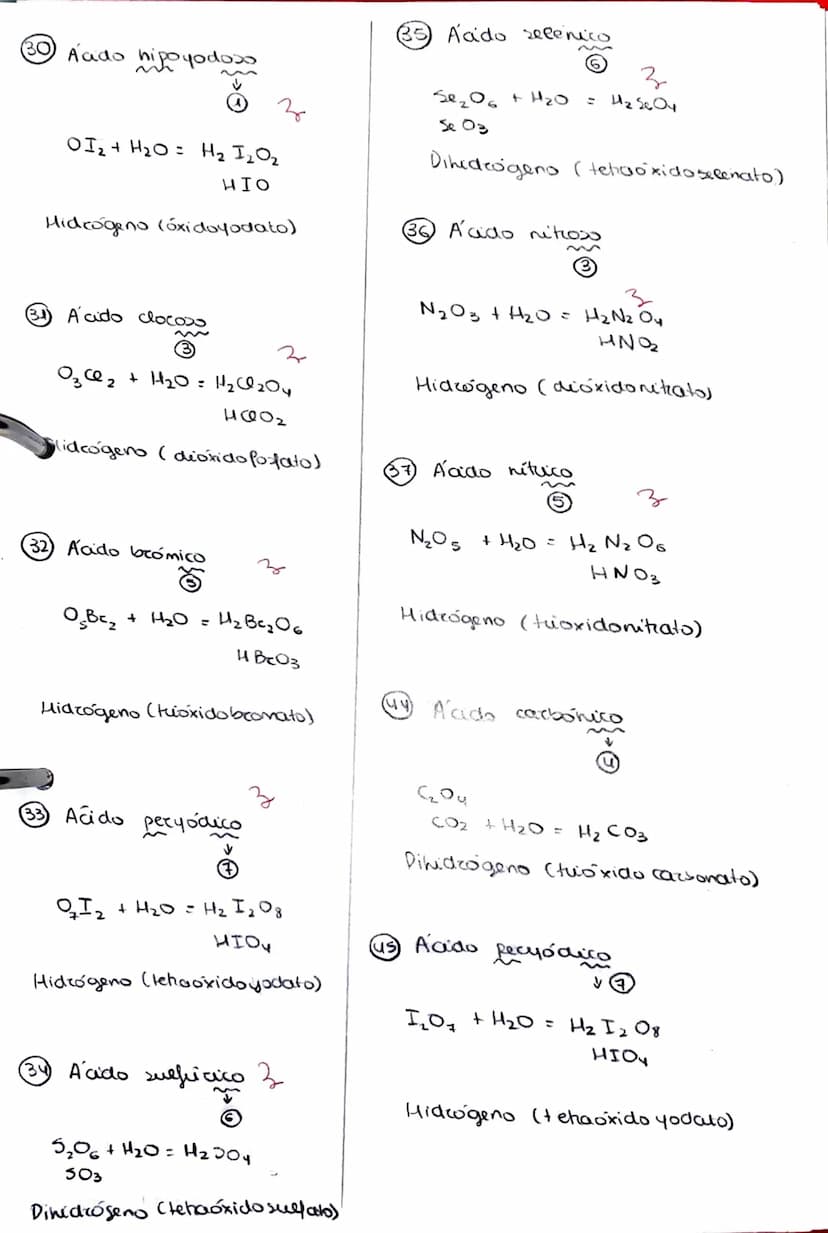 30 Ácido hipoyodoso
1
OI₂ + H₂O = H₂I₂O₂
HIO
Hidrógeno (óxidoyodato)
31 Ácido cloroso
3
O₃Cl₂ + H₂O = H₂Cl₂O₄
HClO₂
Hidrógeno (dióxidofosfato)
32 Ácido brómico
5
O₅Br₂ + H₂O = H₂Br₂O₆
HBrO₃
Hidrógeno (trióxidobromato)
33 Ácido peryódico
7
O₇I₂ + H₂O = H₂I₂O₈
HIO₄
Hidrógeno (tetraóxidoyodato)
34 Ácido sulfúrico
6
S₂O₆ + H₂O = H₂SO₄
SO₃
Dihidrógeno (tetraóxidosulfato)
35 Ácido selénico
6
Se₂O₆ + H₂O = H₂SeO₄
SeO₃
Dihidrógeno (tetraóxidoselenato)
36 Ácido nitroso
3
N₂O₃ + H₂O = H₂N₂O₄
HNO₂
Hidrógeno (dióxidonitrato)
37 Ácido nítrico
5
N₂O₅ + H₂O = H₂N₂O₆
HNO₃
Hidrógeno (trioxidonitrato)
44 Ácido carbónico
4
C₂O₄
CO₂ + H₂O = H₂CO₃
Dihidrógeno (trióxido carbonato)
45 Ácido peryódico
7
I₂O₇ + H₂O = H₂I₂O₈
HIO₄
Hidrógeno (tetraóxido yodato)